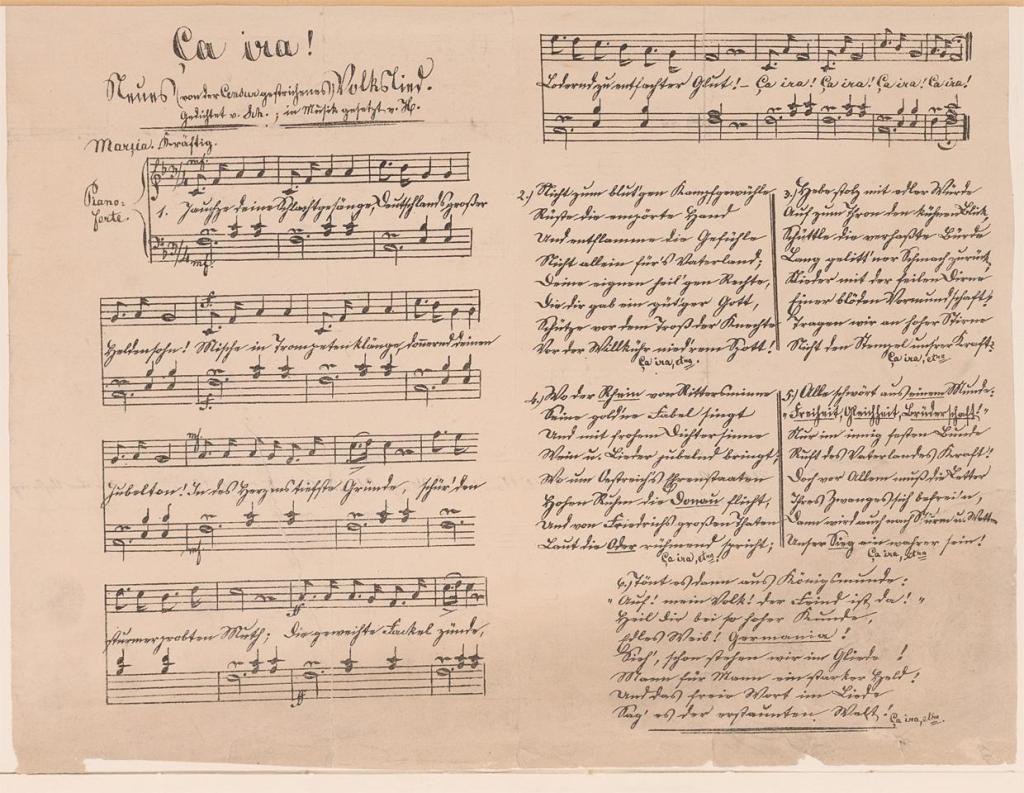 Ça ira!
Neues (von der Censur gestrichenes) Volkslied.
Gedichtet v. Sch.; in Musik gesetzt v. H.
Marzia. Kräftig.
Piano-
forte.
mf.
1. Jauchze deine Schlachtgesänge, Deutschlands großer
mf.
Heldensohn! Mische in Trompetenklänge, donnernd deinen
f.
mf.
Jubelton! In des Herzens tiefste Gründe, schür' den
mf
ff
sturmerprobten Muth; die geweihte Fackel zünde,
ff
Lodernd zu entfachter Glut! – Ça ira! Ça ira! Ça ira! Ça ira!
2.) Nicht zum blut'gen Kampfgewühle
Rüste die empörte Hand
Und entflamme die Gefühle
Nicht allein für's Vaterland;
Deine eignen heil'gen Rechte,
Die dir gab ein güt'ger Gott,
Schütze vor dem Troß der Knechte
Vor der Willkühr nied'rem Spott!
Ça ira, etc.
3.) Hebe stolz mit edler Würde
Auf zum Thron den kühnen Blick,
Schüttle die verhaßte Bürde
Lang gelitt'ner Schmach zurück,
Nieder mit der feilen Dirne
Einer blöden Vormundschaft;
Tragen wir an hoher Stirne
Nicht den Stempel unsrer Kraft?
Ça ira, etc.
4.) Wo der Rhein von Rittersminne
Seine gold'ne Fabel singt
Und mit frohem Dichtersinne
Wein u. Lieder jubelnd bringt,
Wo um Oestreichs Ehrenstaaten
Hohen Ruhm die Donau flicht,
Und von Friedrichs großen Thaten
Laut die Oder rühmend spricht;
Ça ira, etc.
5.) Alle schwört aus einem Munde:
"Freiheit, Gleichheit, Brüderschaft!"
Nur im innig festen Bunde
Ruht des Vaterlandes Kraft!
Doch vor Allem muß die Letter
Ihres Zwanges sich befrei'n,
Dann wird auch nach Sturm u. Wetter
Unser Sieg ein wahrer sein!
Ça ira, etc.
6.) Tönt es dann aus Königsmunde:
"Auf! mein Volk! der Feind ist da!"
Heil dir bei so hoher Kunde,
Edles Weib! Germania!
Sieh', schon stehen wir im Gliede!
Mann für Mann ein starker Held!
Und das freie Wort im Liede
Sag' es der erstaunten Welt!
Ça ira, etc.